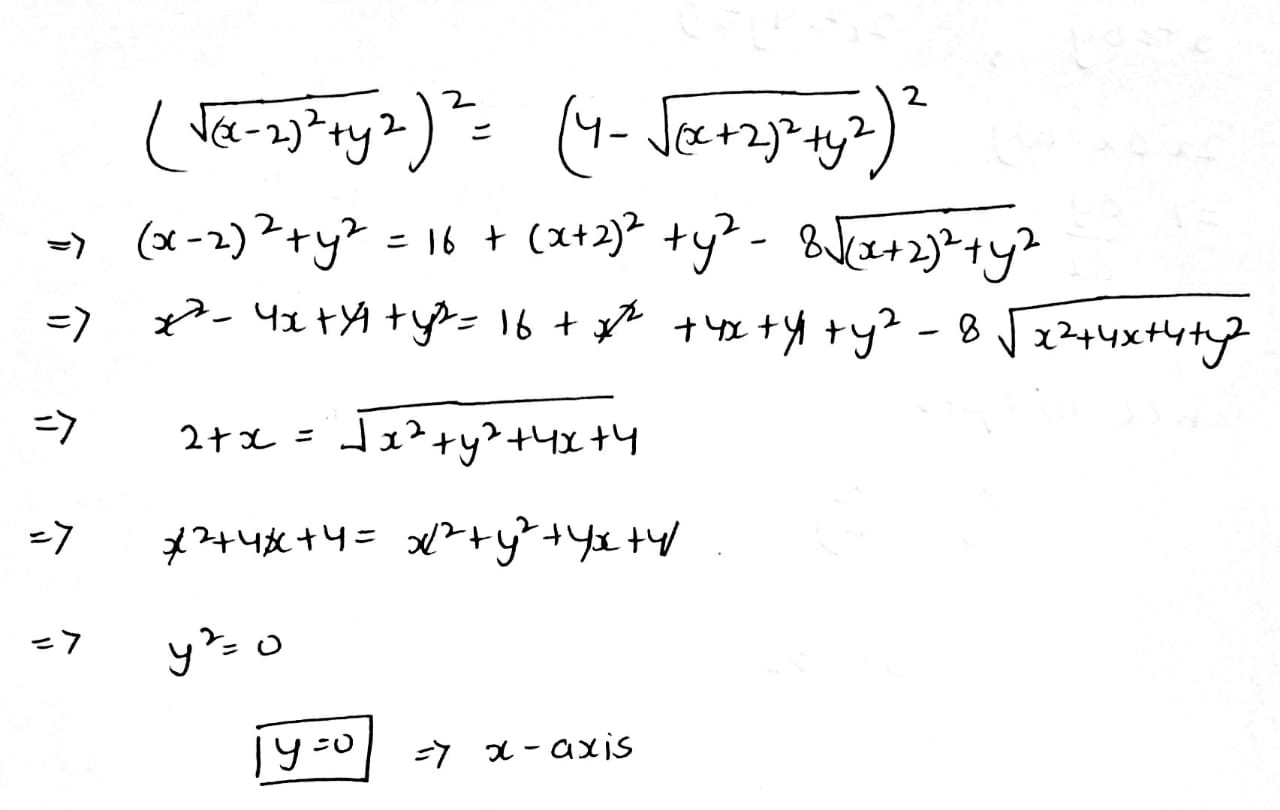 (√(x-2)²+y²)² = (4-√(x+2)²+y²)²
=> (x-2)²+y² = 16 + (x+2)² +y² - 8√(x+2)²+y²
=> x²- 4x+4+y²= 16 + x² +4x+4+y² - 8√x²+4x+4+y²
=> 2+x = √x²+y²+4x+4
=> x²+4x+4= x²+y²+4x+4
=> y²=0
y=0 => x-axis